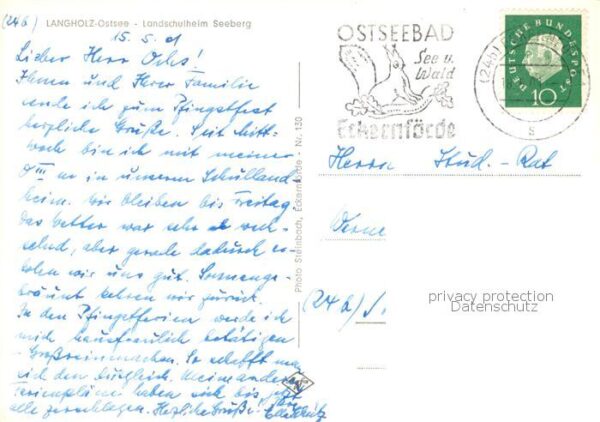 (24b) LANGHOLZ-Ostsee - Landschulheim Seeberg
15. 5. 61
Lieber Herr Ochs!
Ihnen und Ihrer Familie
sende ich zum Pfingstfest
herzliche Grüße. Seit Mitt-
woch bin ich mit meiner
O III a in unserem Schulland-
heim. Wir bleiben bis Freitag.
Das Wetter war sehr wech-
selnd, aber gerade dadurch er-
holen wir uns gut. Sonnenge-
bräunt kehren wir zurück.
In den Pfingstferien werde ich
mich hausfraulich betätigen
- Großreinemachen. So schafft man
sich den Ausgleich. Meine anderen
Ferienpläne haben sich bis jetzt
alle zerschlagen. Herzliche Grüße! Ihre
Photo Steinbach, Eckernförde - Nr. 130
OSTSEEBAD
See u.
Wald
Eckernförde
(24b)
s
DEUTSCHE BUNDESPOST
10
Herrn Stud.-Rat
(24b)
privacy protection
Datenschutz